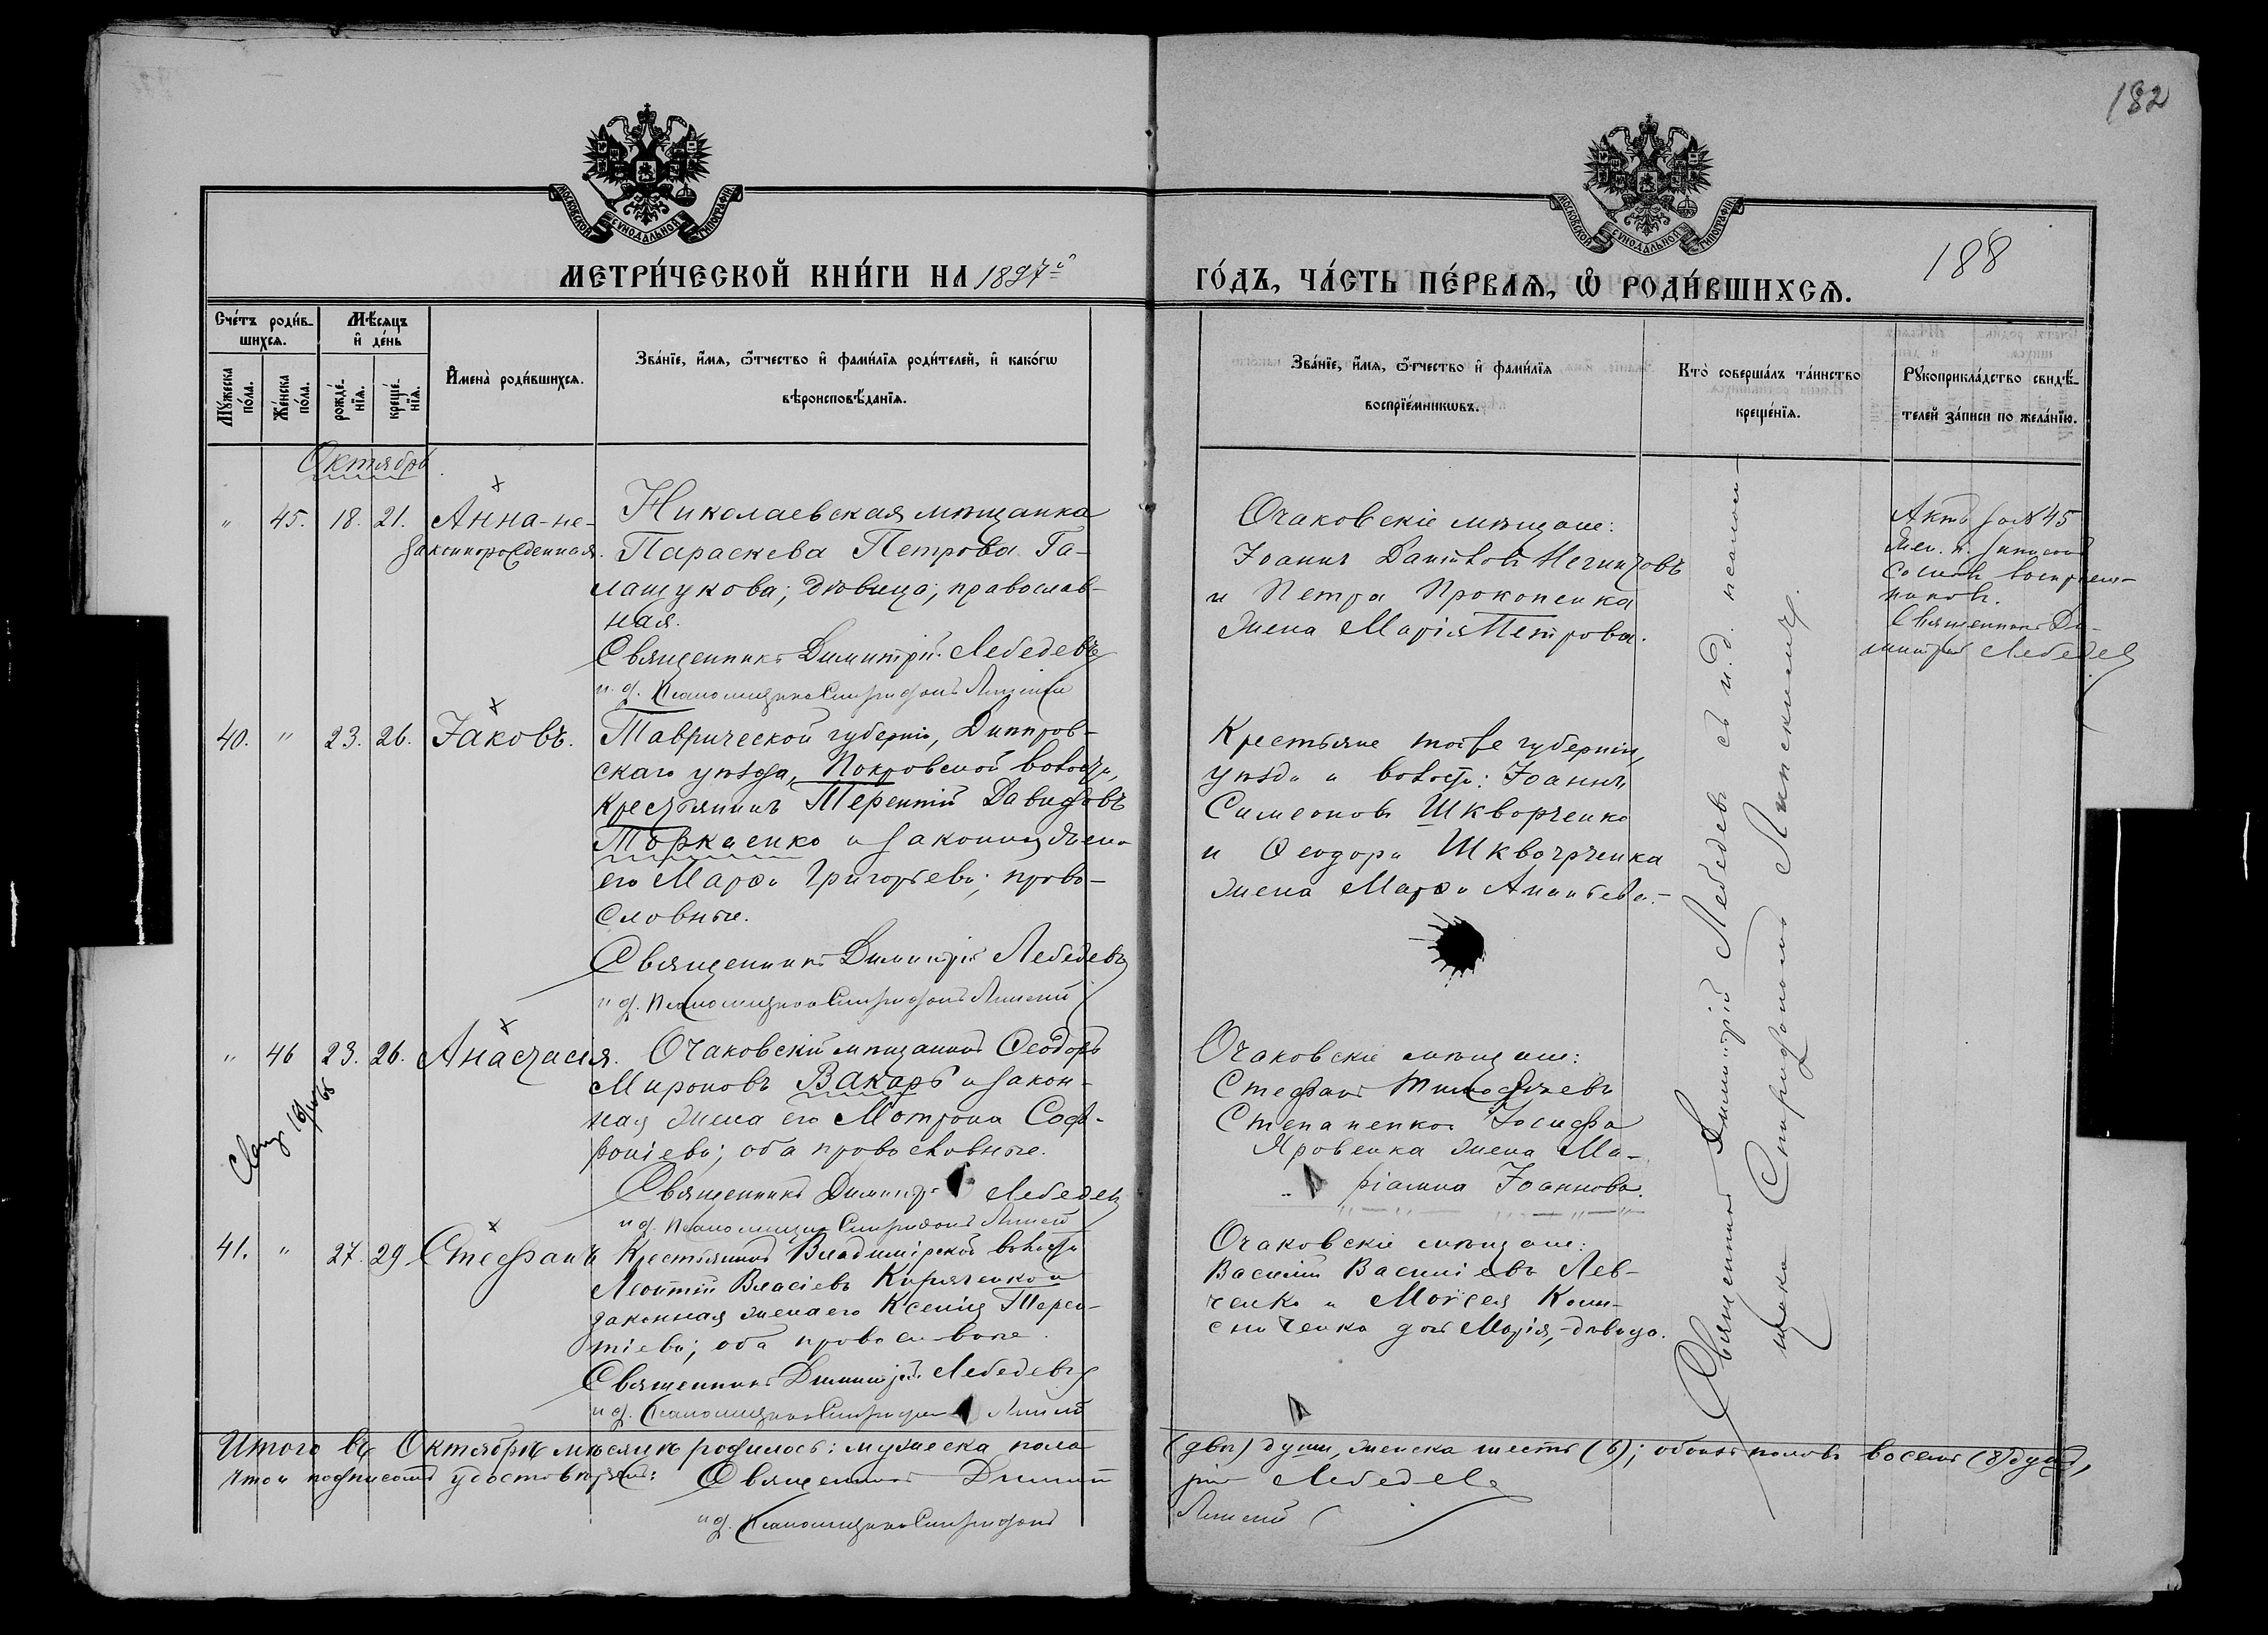 182
188
МОСКОВСКОЙ СѴНОДАЛЬНОЙ ТИПОГРАФІИ
МОСКОВСКОЙ СѴНОДАЛЬНОЙ ТИПОГРАФІИ
МЕТРИ́ЧЕСКОЙ КНИ́ГИ НА 1897й
ГО́ДЪ, ЧА́СТЬ ПЕ́РВАѦ, Ѡ҆ РОДИ́ВШИХСѦ.
Сче́тъ роди́в-
шихсѧ.
Мѣ́сяцъ
и҆ де́нь
Мꙋ́жеска по́ла.
Же́нска по́ла.
рожде́-
нїѧ.
креще́-
нїѧ.
И҆мена̀ роди́вшихсѧ.
Зва́нїе, и҆́мѧ, ѻ҆́тчество и҆ фами́лїѧ роди́телей, и҆ како́гѡ
вѣроисповѣ́данїѧ.
Зва́нїе, и҆́мѧ, ѻ҆́тчество и҆ фами́лїѧ
воспрїе́мникѡвъ.
Кто̀ соверша́лъ та́инство
креще́нїѧ.
Рꙋкоприкла́дство свидѣ́-
телей за́писи по жела́нїю.
Октябрь
" 45. 18. 21. Анна-не-
законнорожденная.
Николаевская мѣщанка
Параскева Петрова Га-
лащукова; дѣвица; православ-
ная.
Священникъ Димитрій Лебедевъ
и. д. Псаломщика Спиридонъ
Очаковскіе мѣщане:
Іоаннъ
и Петра Прокопенка
жена Марія Петрова.
Актъ за № 45
Священникъ Ди-
митрій Лебедев
40. " 23. 26. Іаковъ.
Таврической губерніи, Днѣпров-
скаго уѣзда, Покровской волости,
крестьянинъ Терентій Давидовъ
и законная жена
его Марѳа Григорьева; право-
славные.
Священникъ Димитрій Лебедевъ
и д. Псаломщика Спиридонъ
Крестьяне той же губерніи,
уѣзда и волости: Іоаннъ
Симеоновъ Шкворченко
и Ѳеодора Шкворченка
жена Марѳа Ананьева.-
" 46 23. 26. Анастасія.
Очаковскій мѣщанинъ Ѳеодоръ
Мироновъ Вакарь и закон-
ная жена его Мотрона Соф-
роніева; оба православные.
Священникъ Димитрій Лебедев
и д. Псаломщика Спиридонъ
Очаковскіе мѣщане:
Стефанъ Тимоѳеевъ
Степаненко Іосифа
Яровенка жена Ма-
ріамна Іоаннова.
41. " 27. 29 Стефанъ
Крестьянинъ Владимірской волости
Леонтій Власіевъ Кириченко и
законная жена его Ксенія Терен-
тіева; оба православные.
Священникъ Димитрій Лебедевъ
и д. Псаломщика Спиридонъ
Очаковскіе мѣщане:
Василій Василіевъ Лев-
ченко и Моѵсея
дочь Марія, - дѣвица.
Священникъ Димитрій Лебедевъ съ и. д. псалом-
щика Спиридономъ Липскимъ.
Итого въ Октябрѣ мѣсяцѣ родилось: мужеска пола (двѣ) души, женска шесть (6); обоихъ половъ восемь (8) душъ,
что и подписомъ удостовѣряемъ: Священникъ Димит рій Лебедев
и д. Псаломщика Спиридонъ